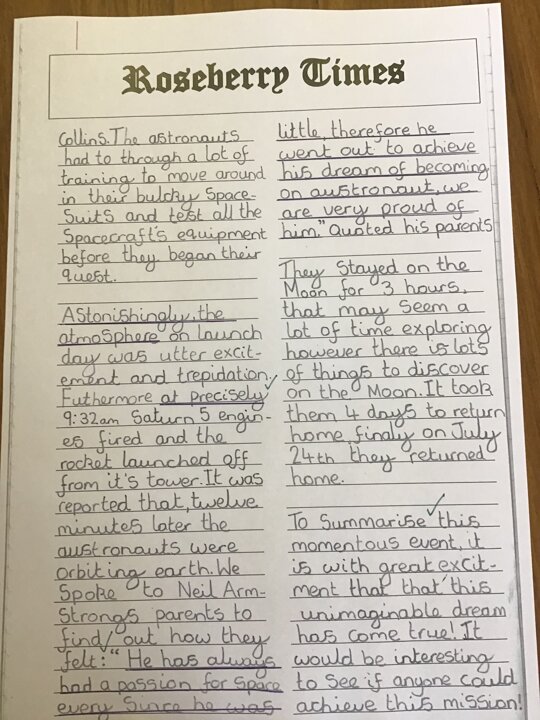 Roseberry Times
Collins. The astronauts
had to through a lot of
training to move around
in their bulcky Space-
Suits and test all the
Spacecraft's equipment
before they began their
quest.
Astonishingly, the
atmosphere on launch
day was utter excit-
ement and trepidation.
Futhermore at precisely
9:32am Saturn 5 engin-
es fired and the
rocket launched off
from it's tower. It was
reported that, twelve
minutes later the
austronauts were
orbiting earth. We
Spoke to Neil Arm-
Strongs parents to
find out how they
felt: "He has always
had a passion for Space
every Since he was
little, therefore he
went out to achieve
his dream of becoming
on austronaut, we
are very proud of
him." Quoted his parents
They Stayed on the
Moon for 3 hours,
that may Seem a
lot of time exploring
however there is lots
of things to discover
on the Moon. It took
them 4 days to return
home, finaly on July
24th they returned
home.
To Summarise this
momentous event, it
is with great excit-
ment that that this
unimaginable dream
has come true! It
would be interesting
to See if anyone could
achieve this mission!